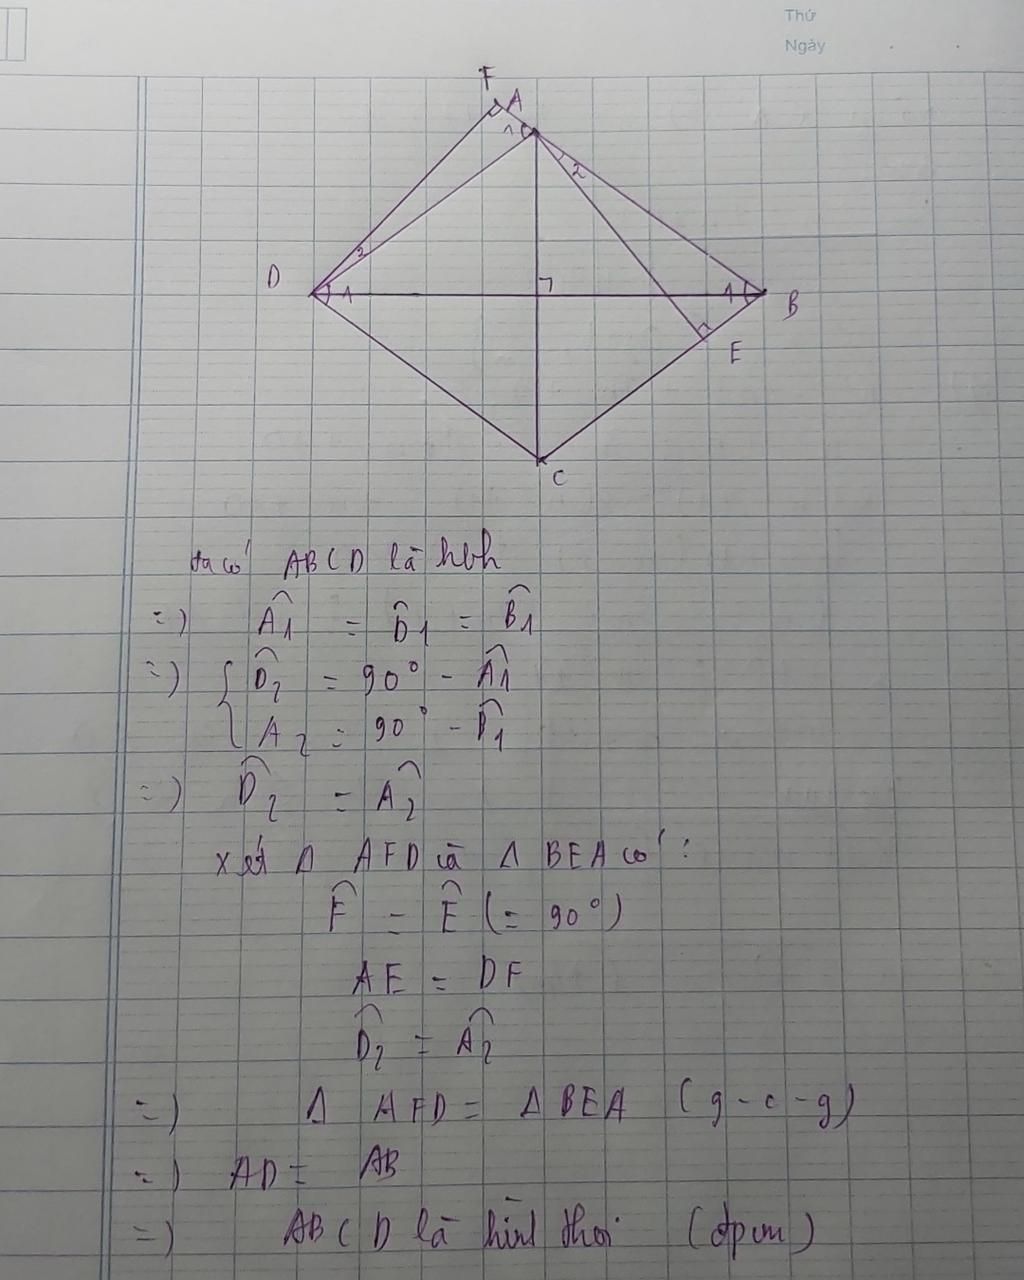 Thứ
Ngày
F
A
1
2
2
D
1
1
B
E
C
ta có ABCD là hbh
=) Â1 = D̂1 = B̂1
=) { D̂2 = 90° - Â1
A2 = 90° - B̂1
=) D̂2 = Â2
xét Δ AFD và Δ BEA có :
F̂ = Ê (= 90°)
AE = DF
D̂2 = Â2
=) Δ AFD = Δ BEA (g-c-g)
=) AD = AB
=) ABCD là hình thoi (đpcm)